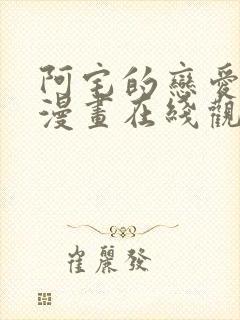 阿宅的戀愛
漫畫在綫觀
崔麗發